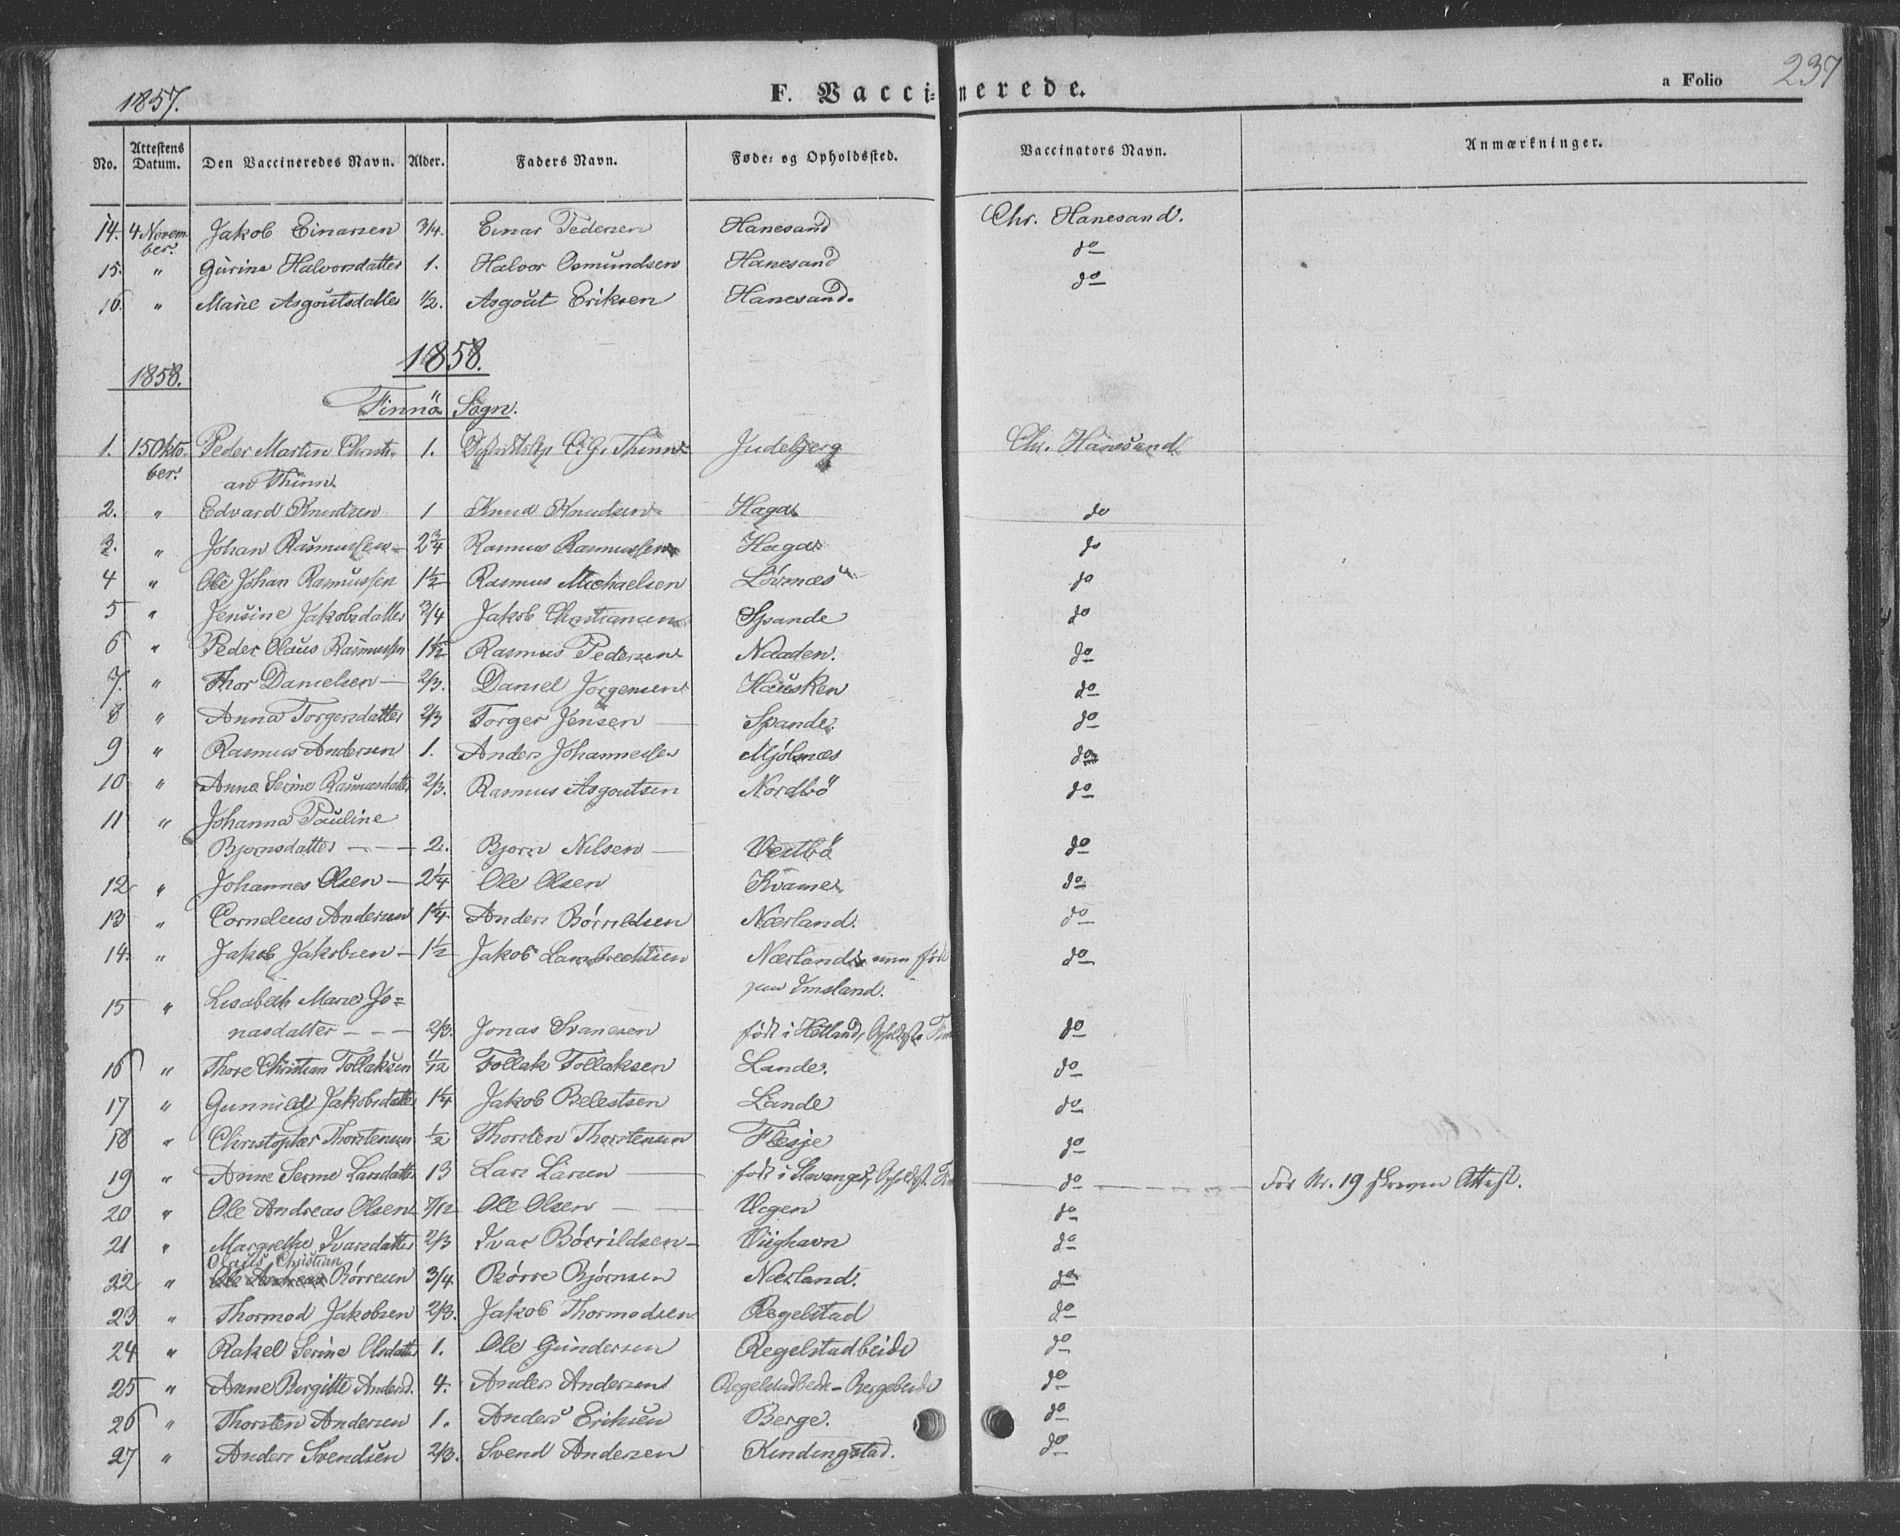 1857.
F. Vaccinerede.
a Folio 237
No. Attestens Datum. Den Vaccineredes Navn. Alder. Faders Navn. Føde- og Opholdssted. Vaccinators Navn. Anmærkninger.
14. 4 Novem- Jakob Einarsen 3/4. Einar Pedersen Hanesand Chr. Hanesand.
ber.
15. " Gurine Halvorsdatter 1. Halvor Osmundsen Hanesand do
16. " Marie Asgoutsdatter 1/2. Asgout Eriksen Hanesand. do
1858.
1858.
Finnö Sogn.
1. 15 Okto- Peder Martin Christi- 1. C. G. Thinn Judebjerg Chr. Hanesand
ber. an Thinn
2. " Edvard Knudsen 1 Knud Knudsen Haga do
3. " Johan Rasmussen 2 3/4 Rasmus Rasmussen Haga do
4 " Ole Johan Rasmussen 1 1/2 Rasmus Michaelsen Lövnæs do
5 " Jensine Jakobsdatter 3/4 Jakob Christiansen Spande do
6 " Peder Olaus Rasmussen 1 1/2 Rasmus Pedersen Naaden. do
7. " Thor Danielsen 2/3. Daniel Jorgensen Hausken do
8 " Anna Torgersdatter 2/3 Torger Jensen Spande do
9 " Rasmus Andersen 1. Anders Johannessen Mjölsnæs do
10 " Anne Serine Rasmusdatter 2/3. Rasmus Asgoutsen Nordbö do
11 " Johanna Pauline
Bjornsdatter - - - 2. Bjorn Nilsen Vestbö do
12 " Johannes Olsen 2 1/4 Ole Olsen Kvame do
13 " Cornelius Andersen 1 1/4 Anders Börrildsen Nærland. do
14. " Jakob Jakobsen 1 1/2 Jakob Lambrechtsen Nærland men föd do
paa Imsland.
15 " Lisabeth Marie Jo=
nasdatter - - - 2/3. Jonas Svanesen föd i Hetland, Opholdst. do
16 " Thore Christian Tollaksen 11/12 Tollak Tollaksen Lande. do
17 " Gunnild Jakobsdatter 1 1/4 Jakob Belestsen Lande do
18 " Christopher Thorstensen 1/2 Thorsten Thorstensen Flesje do
19 " Anne Serine Larsdatter 13 Lars Larsen föd i Stavanger, Opholdst. do For Nr. 19 skreven Attest.
20 " Ole Andreas Olsen 7/12 Ole Olsen Vegen do
21 " Margrethe Ivarsdatter 2/3 Ivar Börrildsen Viighavn do
Olaus Christian
22 " Ole Andreas Börresen 3/4 Börre Björnsen Nærland. do
23 " Thormod Jakobsen 2/3. Jakob Thormodsen Regelstad do
24 " Rakel Serine Olsdatter 1. Ole Gundersen Regelstadbeide do
25 " Anne Birgitte Andersd. 4. Anders Andersen Regelstadbeide - Bergebeide do
26 " Thorsten Andersen 1. Anders Eriksen Berge. do
27 " Anders Svendsen 2/3. Svend Andersen Kindingstad. do